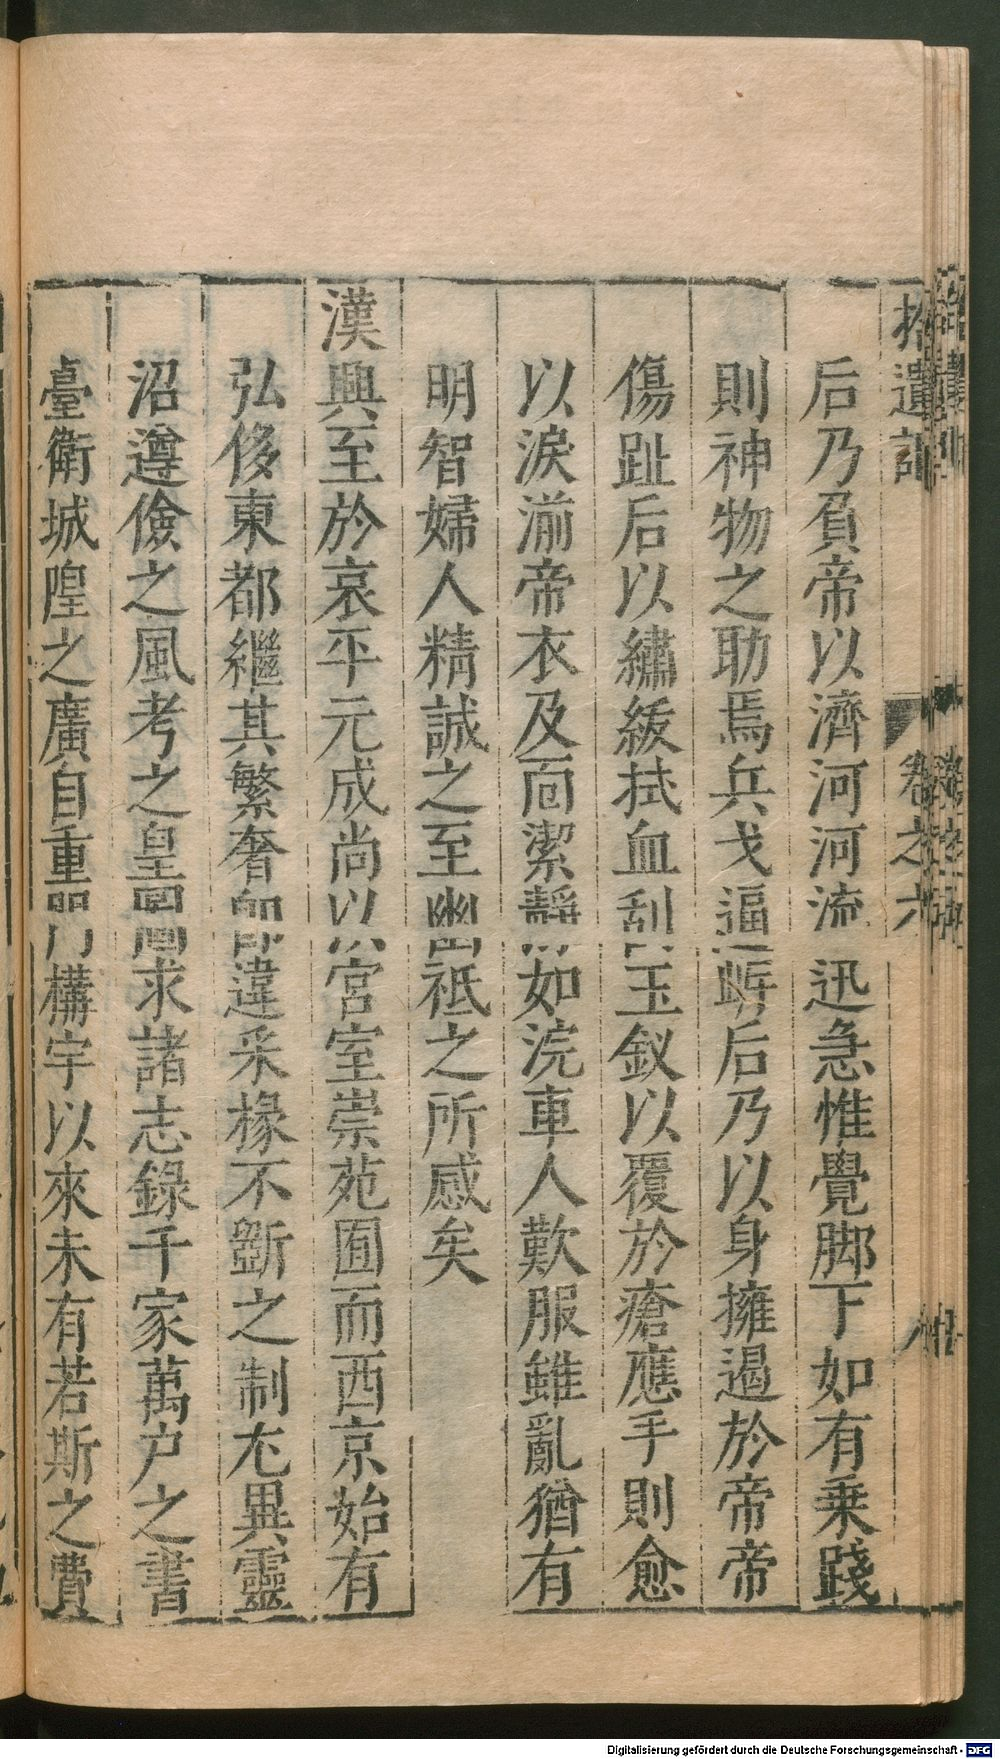 拾遺記 卷之六
后乃負帝以濟河河流迅急惟覺脚下如有乗踐
則神物之助焉兵戈逼岸后乃以身擁遏於帝帝
傷趾后以繡紱拭血刮玉釵以覆於瘡應手則愈
以淚湔帝衣及面潔靜如浣車人歎服雖亂猶有
明智婦人精誠之至幽祗之所感矣
漢興至於哀平元成尚以宮室崇苑囿而西京始有
弘侈東都繼其繁奢即違采椽不斵之制尤異靈
沼遵儉之風考之皇圖求諸志錄千家萬户之書
臺衛城隍之廣自重門構宇以來未有若斯之費
Digitalisierung gefördert durch die Deutsche Forschungsgemeinschaft - DFG